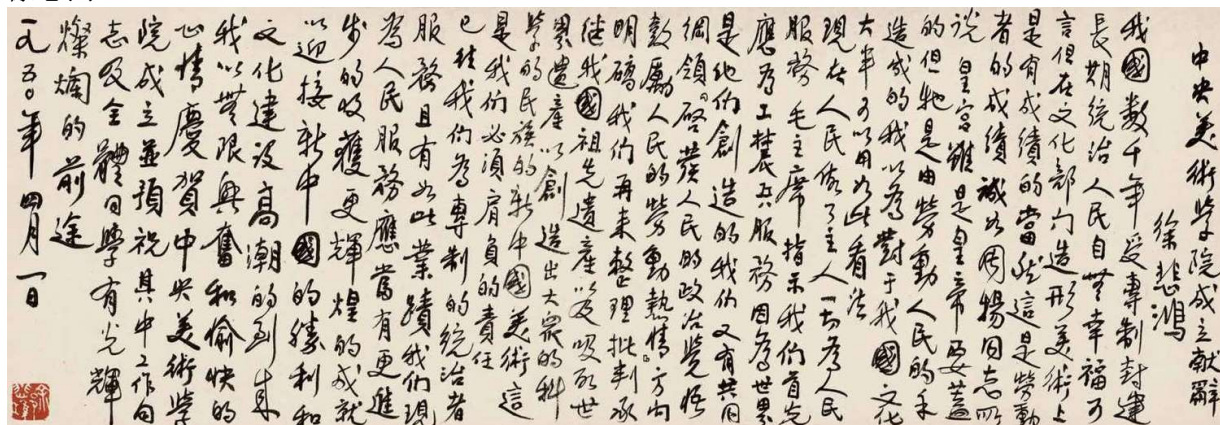 中央美術學院成立献辭
徐悲鴻
我國数千年受專制封建
長期統治人民自無幸福可
言但在文化部门造形美術上
是有成績的當然這是劳動
者的成績誠如周揚同志所
说皇宫雖是皇帝要蓋
的但牠是由劳動人民的手
造成的我以為對于我國文化
大半可以用如此看法
現在人民做了主人一切為人民
服務毛主席指示我们首先
應為工農兵服務因為世界
是他们創造的我们又有共同
綱領啓發人民的政治覺悟
鼓勵人民的勞動熱情方向
明确我们再来整理批判承
继我國祖先遺產以及吸取世
界遺產以創造出大衆的科
學的民族的新中國美術這
是我们必須肩負的責任
已往我们為專制的統治者
服務且有如此業蹟我们現
為人民服務應當有更進
步的收穫更輝煌的成就
以迎接新中國的勝利和
文化建设高潮的到来
我以無限興奮和愉快的
心情慶賀中央美術學
院成立並預祝其中工作同
志及全體同學有光輝
燦爛的前途
一九五〇年四月一日